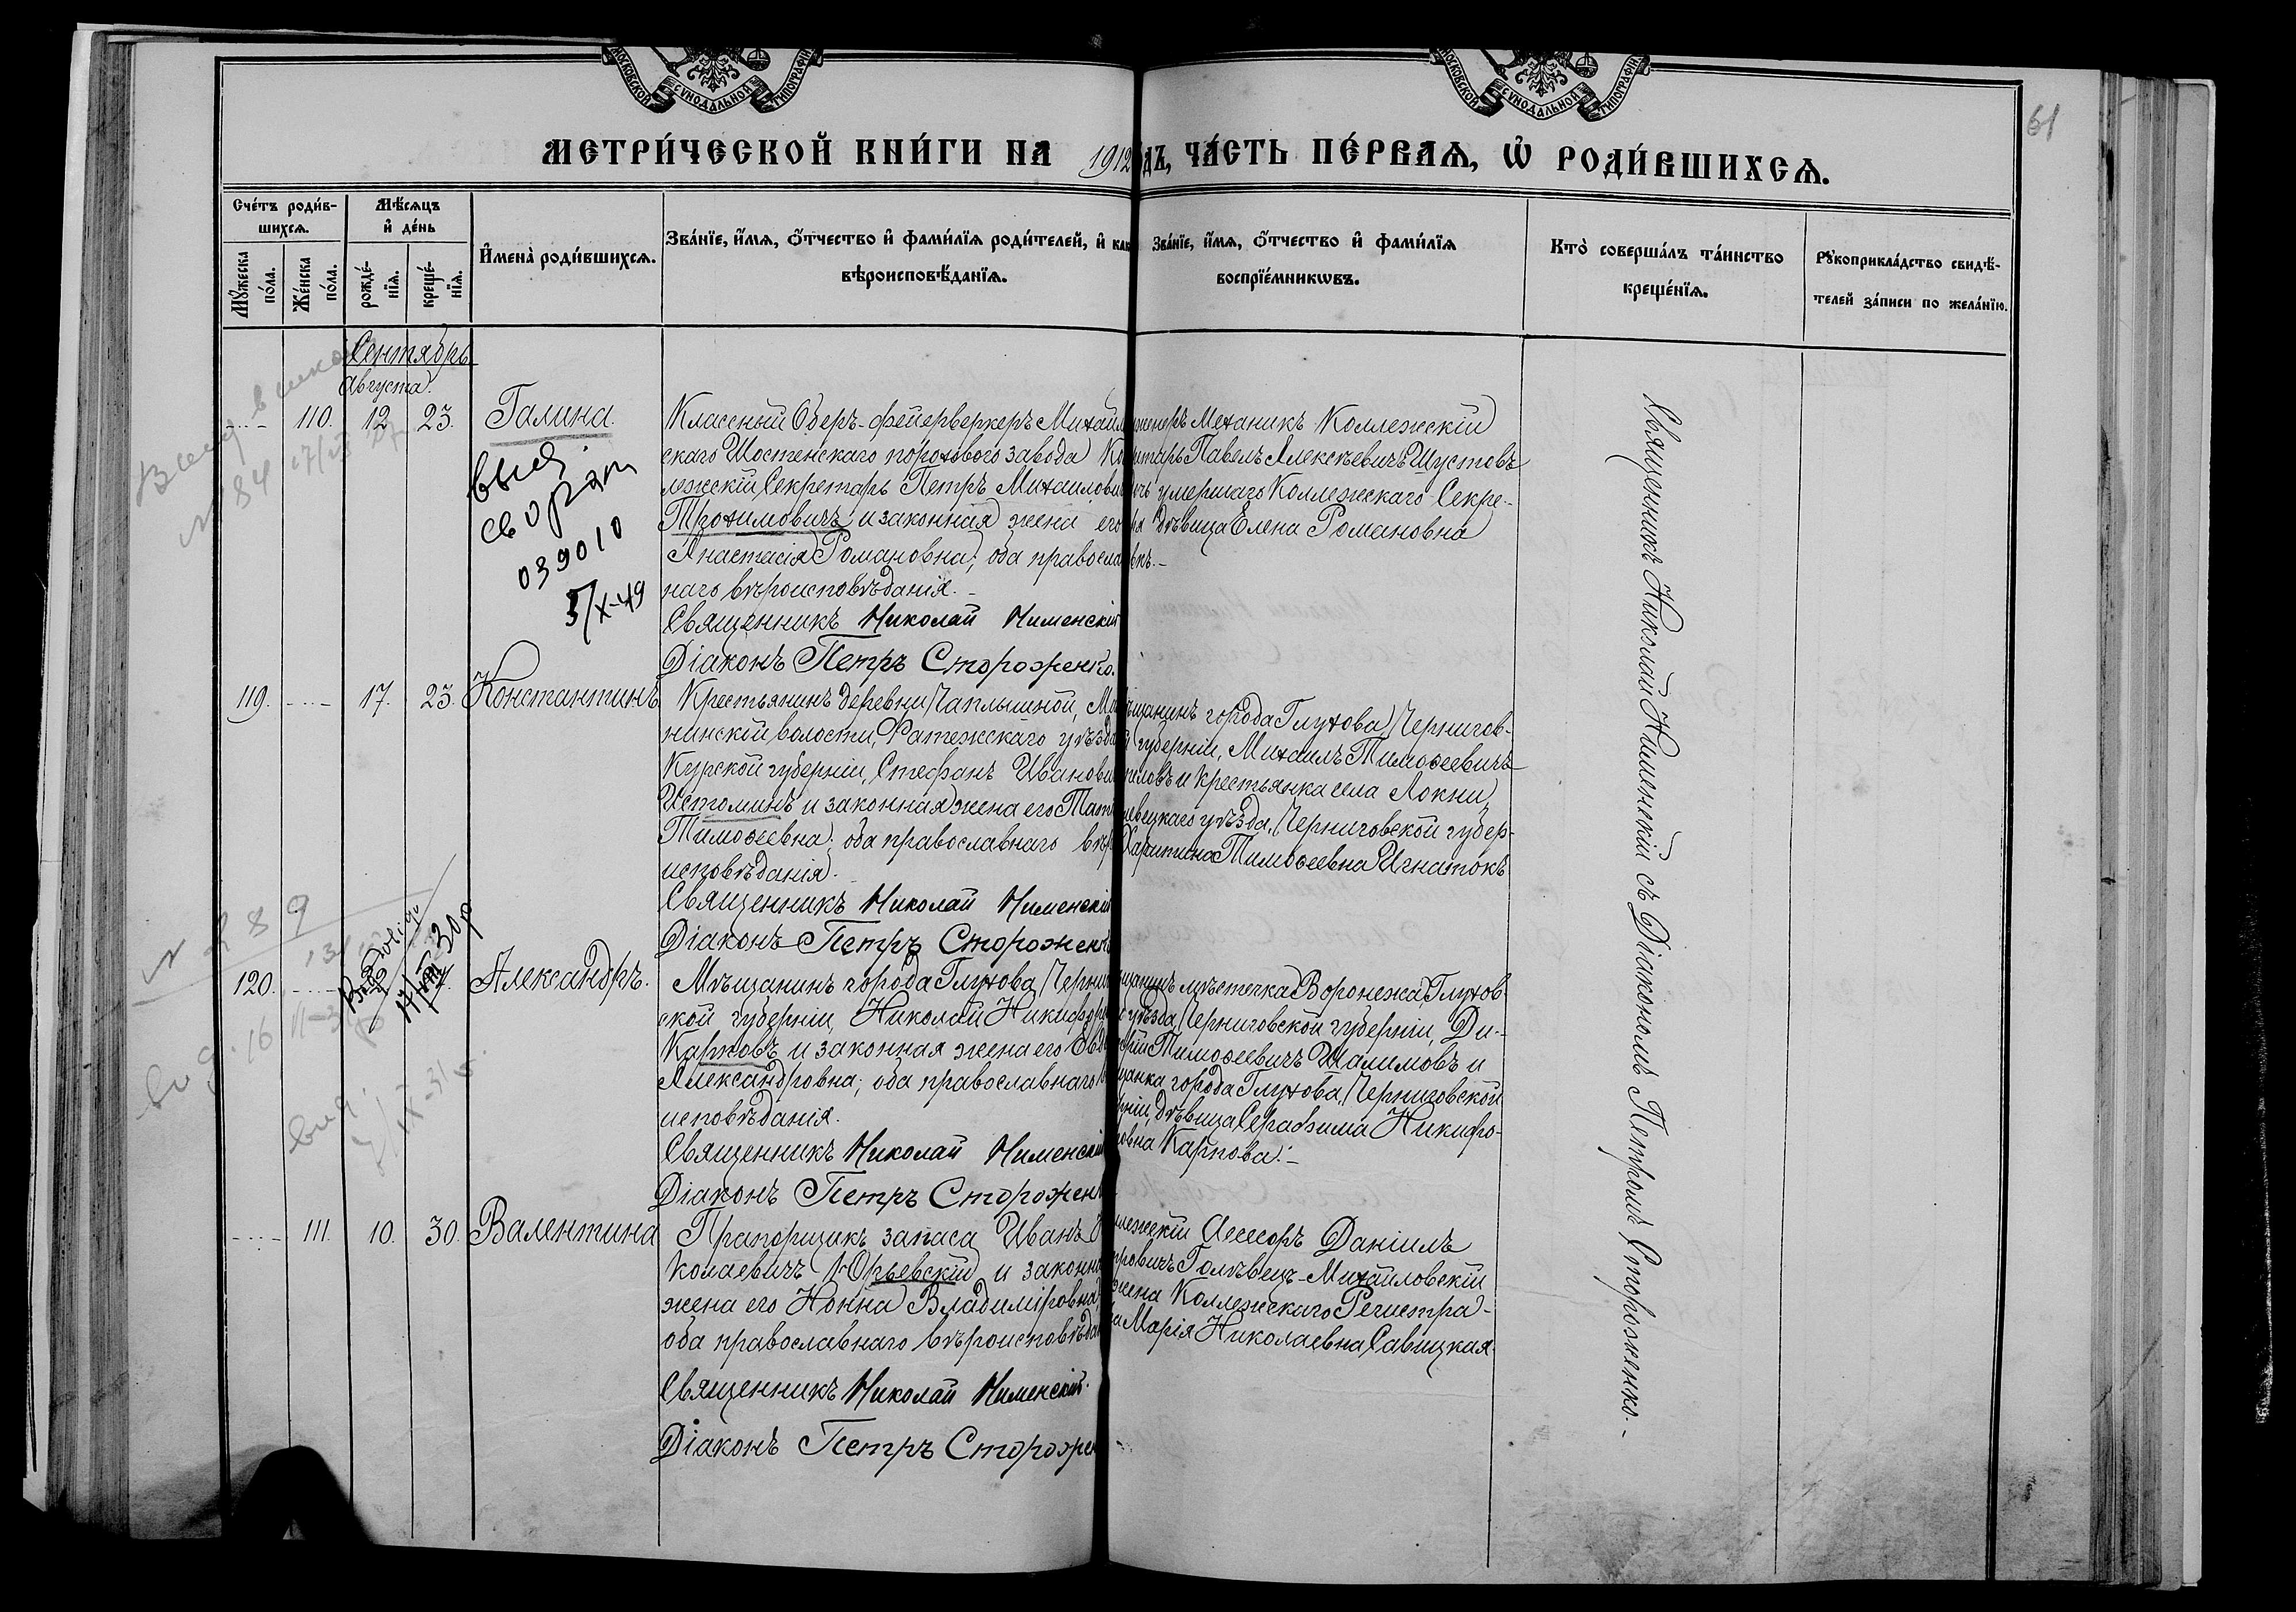 МОСКОВСКОЙ СѴНОДАЛЬНОЙ ТИПОГРАФІИ
МОСКОВСКОЙ СѴНОДАЛЬНОЙ ТИПОГРАФІИ
61
МЕТРИ́ЧЕСКОЙ КНИ́ГИ НА 1912 ДЪ, ЧА́СТЬ ПЕ́РВАѦ, Ѡ҆ РОДИ́ВШИХСѦ.
Сче́тъ роди́в-
шихсѧ.
Мꙋ́жеска по́ла.
Же́нска по́ла.
Мѣ́сѧцъ
и҆ де́нь
рожде́-
нїѧ.
креще́-
нїѧ.
И҆мена̀ роди́вшихсѧ.
Зва́нїе, и҆́мѧ, ѻ҆́тчество и҆ фами́лїѧ роди́телей, и҆ как
вѣроисповѣ́данїѧ.
Зва́нїе, и҆́мѧ, ѻ҆́тчество и҆ фами́лїѧ
воспрїе́мникѡвъ.
Кто̀ соверша́лъ та́инство
креще́нїѧ.
Рꙋкоприкла́дство свидѣ́-
телей за́писи по жела́нїю.
Сентябрь
Августа.
110. 12 23. Галина.
выд.
св о рож
039010
5/X-49
Классный Оберъ-фейерверкеръ Михайлов
скаго Шостенскаго порохового завода Кол
лежскій Секретарь Петръ Михаилович
Трохимовичъ и законная жена его
Анастасія Романовна; оба православ
наго вѣроисповѣданія.-
Священникъ Николай Нименскій
Діаконъ Петръ Стороженко.
женеръ Механикъ Коллежскій
ретарь Павелъ Алексѣевичъ Шустовъ
очь умершаго Коллежскаго Секре-
ря дѣвица Елена Романовна
119. 17. 23. Константинъ
Крестьянинъ деревни Чаплыгиной, Ми
нинскій волости, Фатежскаго уѣзда
Курской губерніи, Стефанъ Иванови
Истоминъ и законная жена его Тать
Тимоѳеевна; оба православнаго вѣро
исповѣданія.
Священникъ Николай Нименскій
Діаконъ Петръ Стороженк
щанинъ города Глухова, Чернигов-
й губерніи, Михаилъ Тимоѳеевичъ
ловъ и крестьянка села Локни,
левецкаго уѣзда, Черниговской губер-
Харитина Тимоѳеевна Игнатокъ
120. Александръ.
17/VIII 30 р
Мѣщанинъ города Глухова, Черниг
ской губерніи, Николай Никифоро
Карповъ и законная жена его Евд
Александровна; оба православнаго в
исповѣданія.
Священникъ Николай Нименскій
Діаконъ Петръ Стороженк
щанинъ мѣстечка Воронежа, Глухов-
уѣзда, Черниговской губерніи, Ди-
рій Тимоѳеевичъ Шалимовъ и
щанка города Глухова, Черниговской
рніи, дѣвица Серафима Никифо-
овна Карпова.-
111. 10. 30. Валентина
Прапорщикъ запаса Иванъ Н
колаевичъ Юрьевскій и законна
жена его Нонна Владиміровна;
оба православнаго вѣроисповѣда
Священникъ Николай Нименскій.
Діаконъ Петръ Сторожен
лежскій Ассесоръ Даніилъ
тровичъ Голѣвецъ-Михайловскій
жена Коллежскаго Регистра-
ра Марія Николаевна Савицкая.
Священникъ Николай Нименскій съ Діакономъ Петромъ Стороженко.-